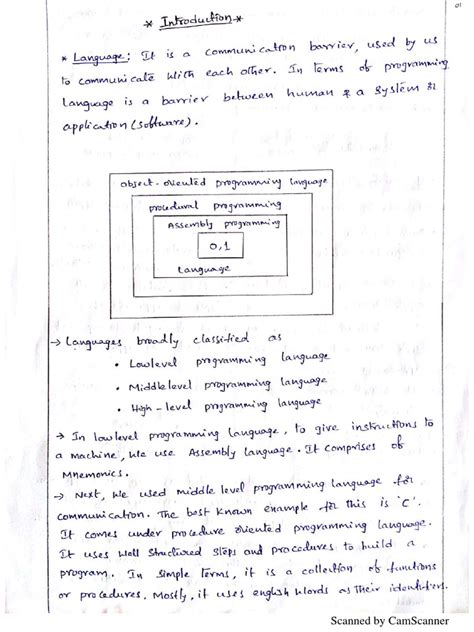 01
* Introduction *
* Language: It is a communication barrier, used by us
to communicate with each other. In terms of programming
language is a barrier between human & a system &
application (software).
object-oriented programming language
procedural programming
Assembly programming
0,1
Language
→ Languages broadly classified as
• Lowlevel programming language
• Middle level programming language
• High-level programming language
→ In lowlevel programming language, to give instructions to
a machine, We use Assembly language. It comprises of
Mnemonics.
→ Next, We used middle level programming language for
communication. The best known example for this is 'C'.
It comes under procedure oriented programming language.
It uses Well Structured Steps and procedures to build a
program. In simple terms, it is a collection of functions
or procedures. Mostly, it uses english Words as their identifiers.
Scanned by CamScanner